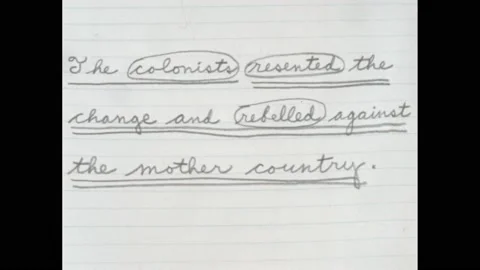 The colonists resented the
change and rebelled against
the mother country.